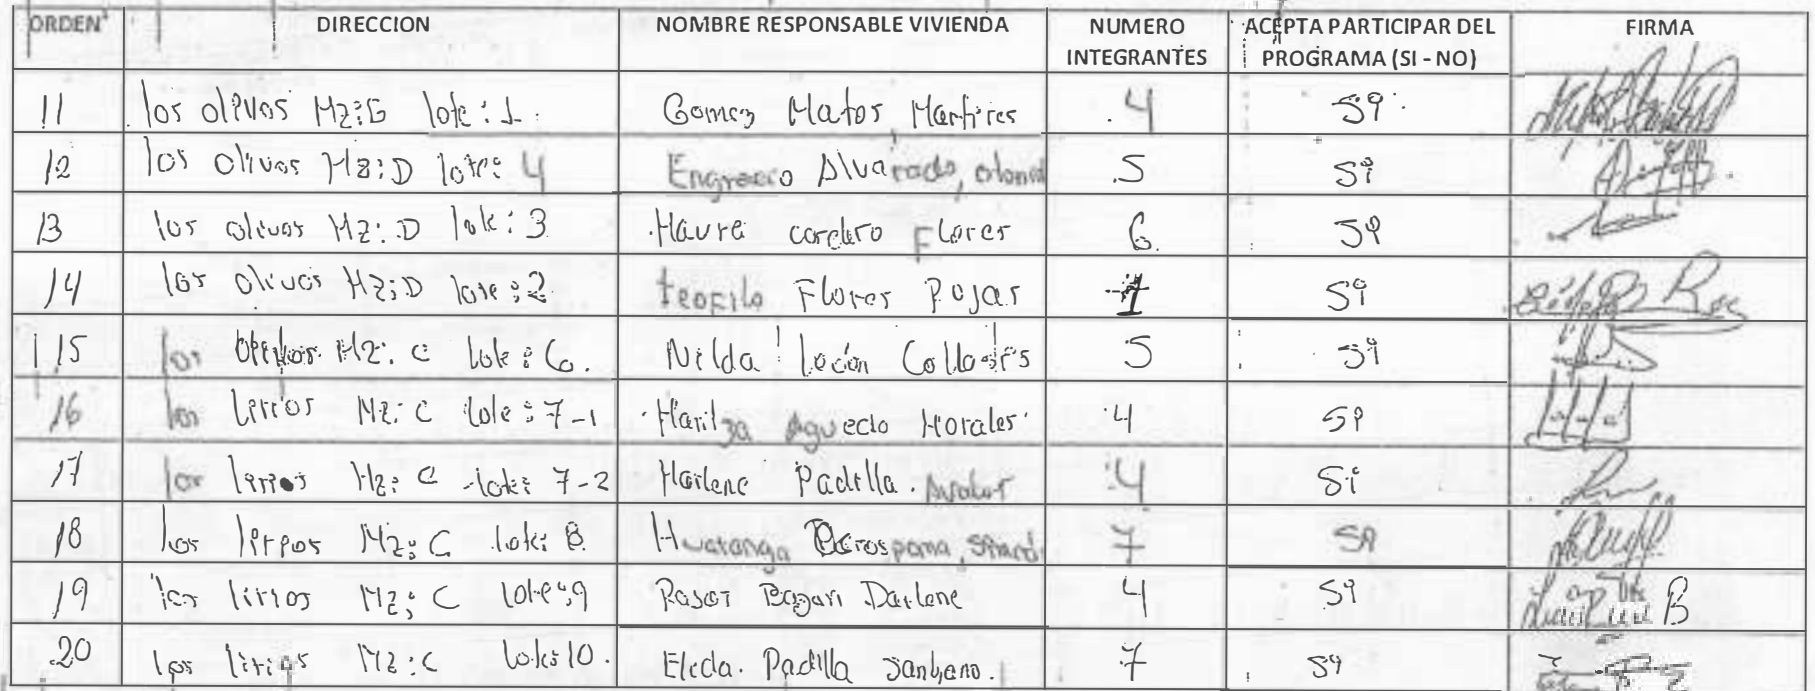 ORDEN DIRECCION NOMBRE RESPONSABLE VIVIENDA NUMERO INTEGRANTES ACEPTA PARTICIPAR DEL PROGRAMA (SI - NO) FIRMA
11 los olivos Mz:G lote:1 Gomez Matos Martires 4 Si
12 los olivos Mz:D lote: 4 Engracio Alvarado, 5 Si
13 los olivos Mz:D lote: 3 Maura cordero Flores 6 Si
14 los olivos Mz:D lote:2 teofilo Flores Pojas Si
15 los Mz: C lote: 6. Nilda 5 Si
16 los lirios Mz: C lote: 7-1 Maritza Aguedo Morales 4 Si
17 los lirios Mz: C lote: 7-2 Marlene Padilla. 4 Si
18 los lirios Mz: C lote: 8 Huaranga 7 Si
19 los lirios Mz: C lote:9 Darlene 4 Si
20 los lirios Mz:C lote:10. Elida. Padilla 7 Si